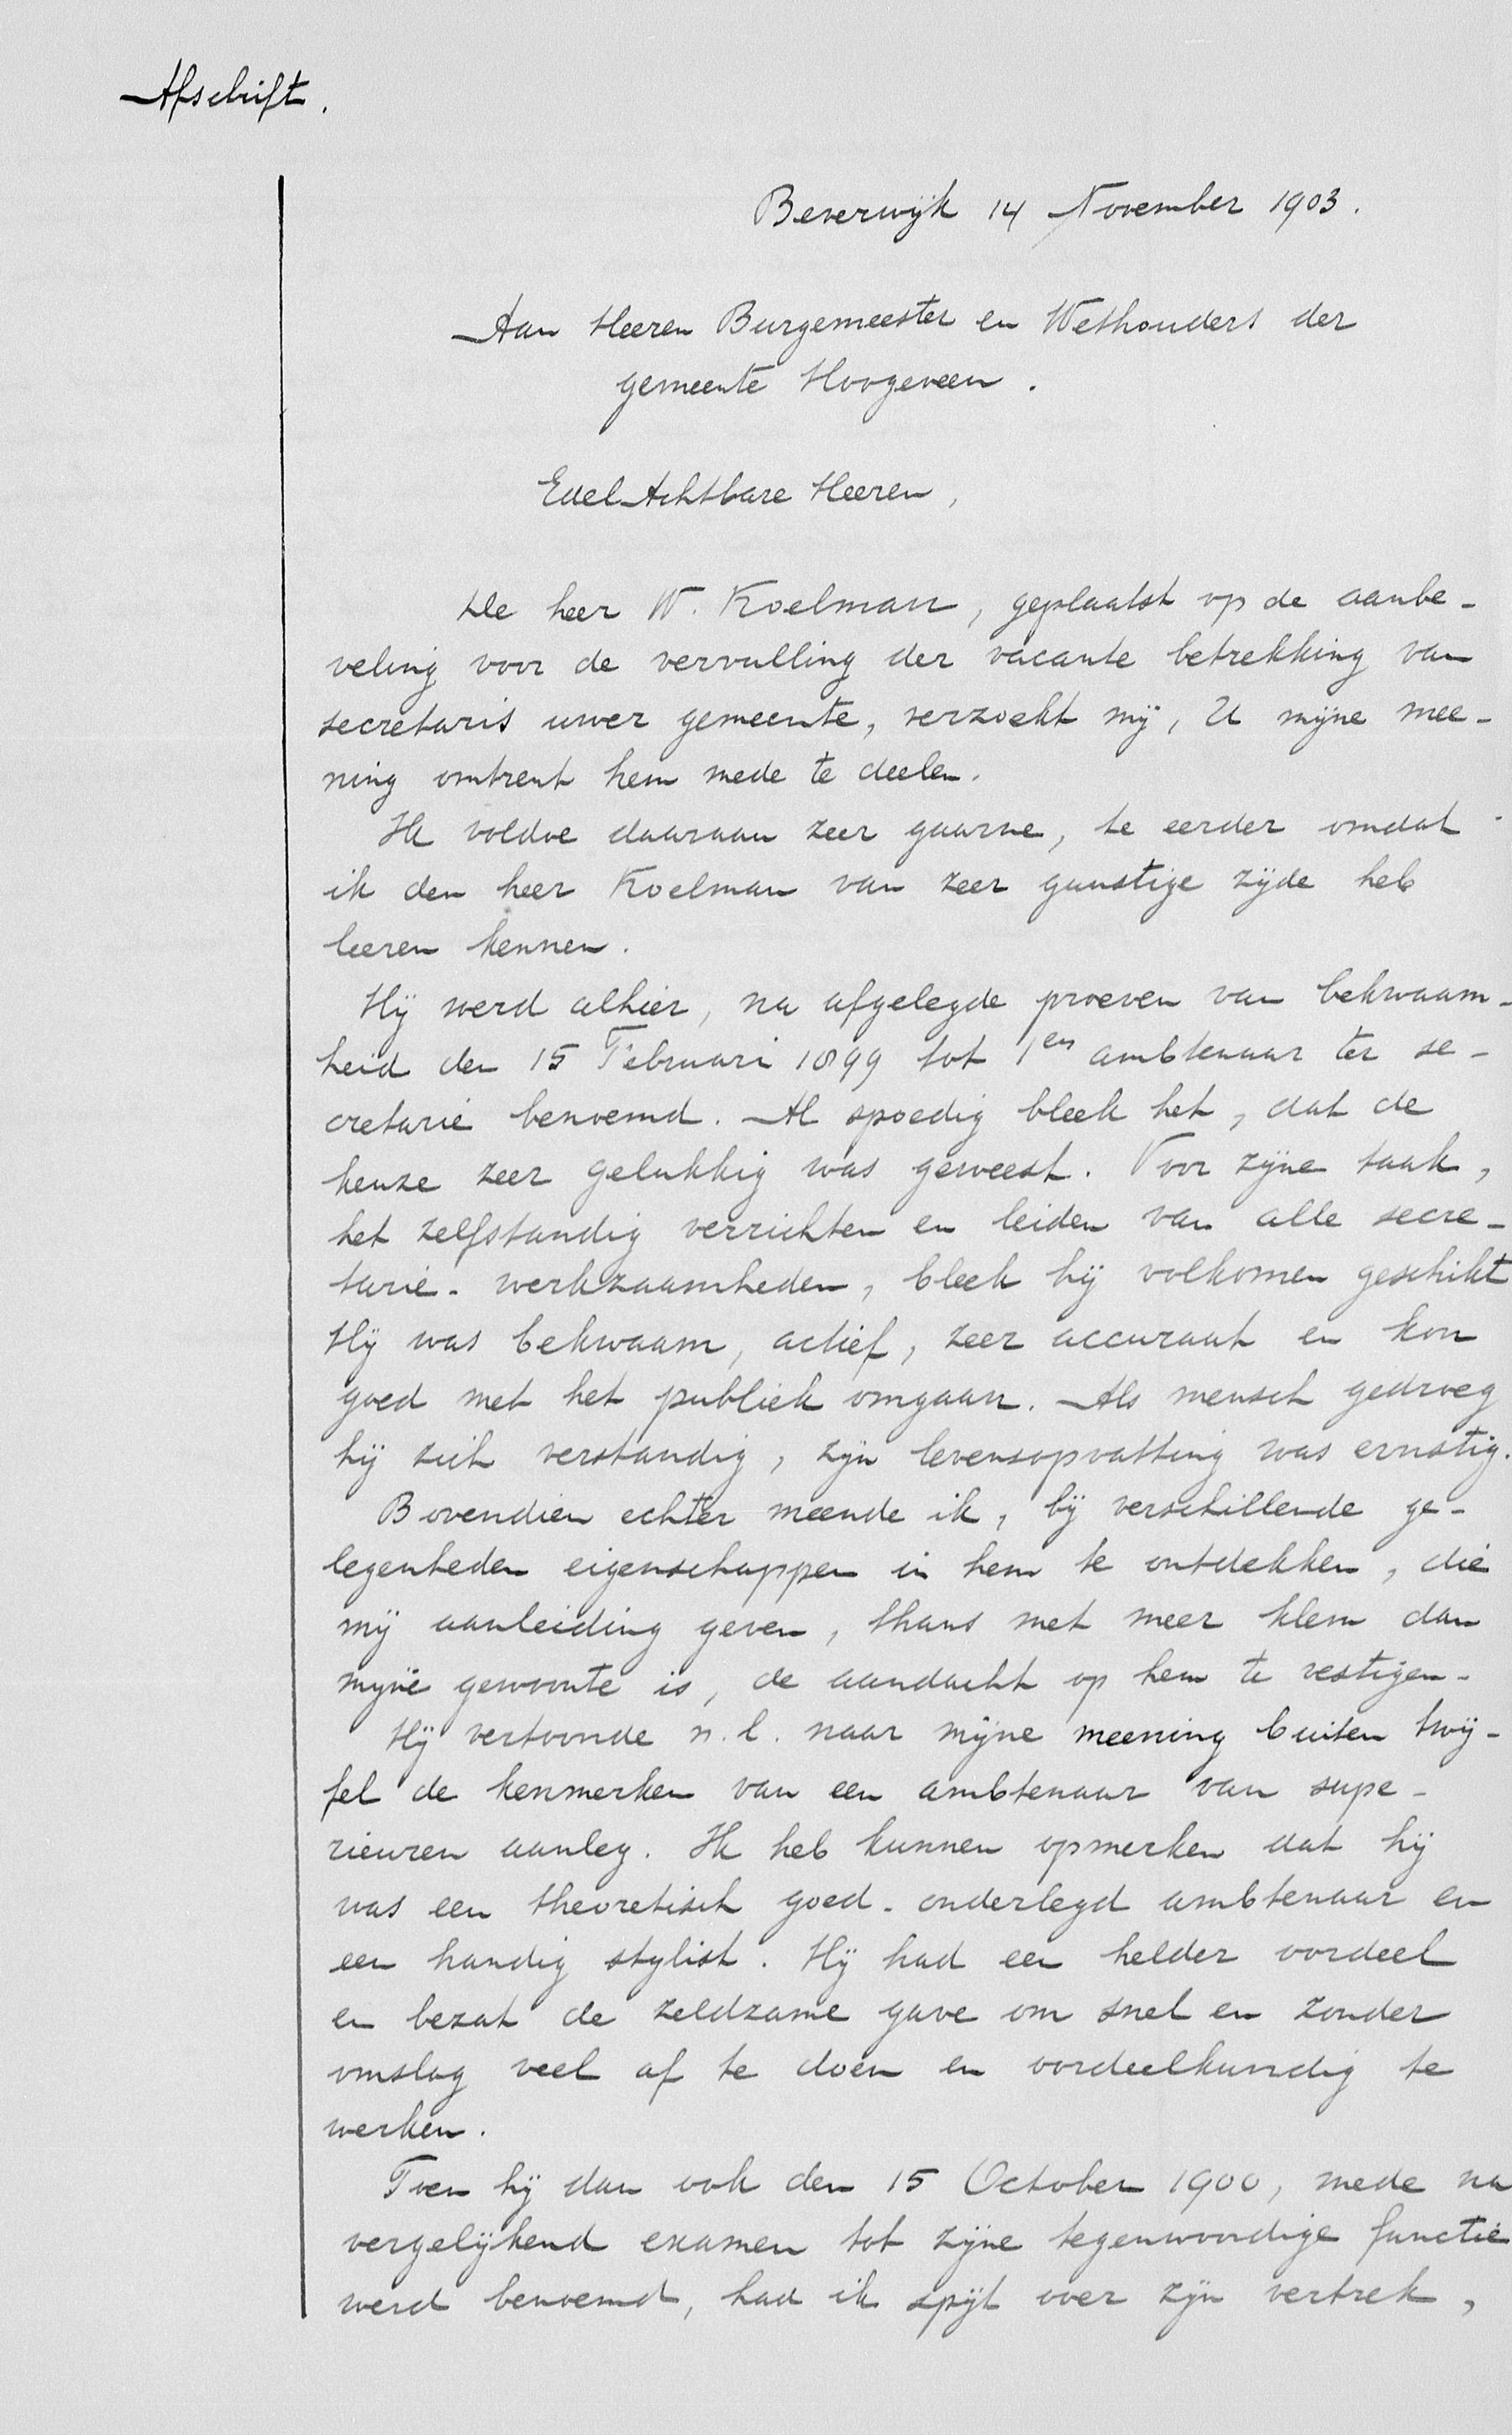 Afschrift.
Beverwijk 14 November 1903.
Aan Heeren Burgemeester en Wethouders der
gemeente Hoogeveen.
EdelAchtbare Heeren,
De heer W. Koelman, geplaatst op de aanbe-
veling voor de vervulling der vacante betrekking van
secretaris uwer gemeente, verzoekt mij, U mijne mee-
ning omtrent hem mede te deelen.
Ik voldoe daaraan zeer gaarne, te eerder omdat
ik den heer Koelman van zeer gunstige zijde heb
leeren kennen.
Hij werd alhier, na afgelegde proeven van bekwaam-
heid den 15 Februari 1899 tot 1en ambtenaar ter se-
cretarie benoemd. Al spoedig bleek het, dat de
keuze zeer gelukkig was geweest. Voor zijne taak,
het zelfstandig verrichten en leiden van alle secre-
tarie-werkzaamheden, bleek hij volkomen geschikt
Hij was bekwaam, actief, zeer accuraat en kon
goed met het publiek omgaan. Als mensch gedroeg
hij zich verstandig, zijn levensopvatting was ernstig.
Bovendien echter meende ik, bij verschillende ge-
legenheden eigenschappen in hem te ontdekken, die
mij aanleiding geven, thans met meer klem dan
mijne gewoonte is, de aandacht op hem te vestigen-
Hij vertoonde n.l. naar mijne meening buiten twij-
fel de kenmerken van een ambtenaar van supe-
rieuren aanleg. Ik heb kunnen opmerken dat hij
was een theoretisch goed-onderlegd ambtenaar en
een handig stylist. Hij had een helder oordeel
en bezat de zeldzame gave om snel en zonder
omslag veel af te doen en oordeelkundig te
werken.
Toen hij dan ook den 15 October 1900, mede na
vergelijkend examen tot zijne tegenwoordige functie
werd benoemd, had ik spijt over zijn vertrek,